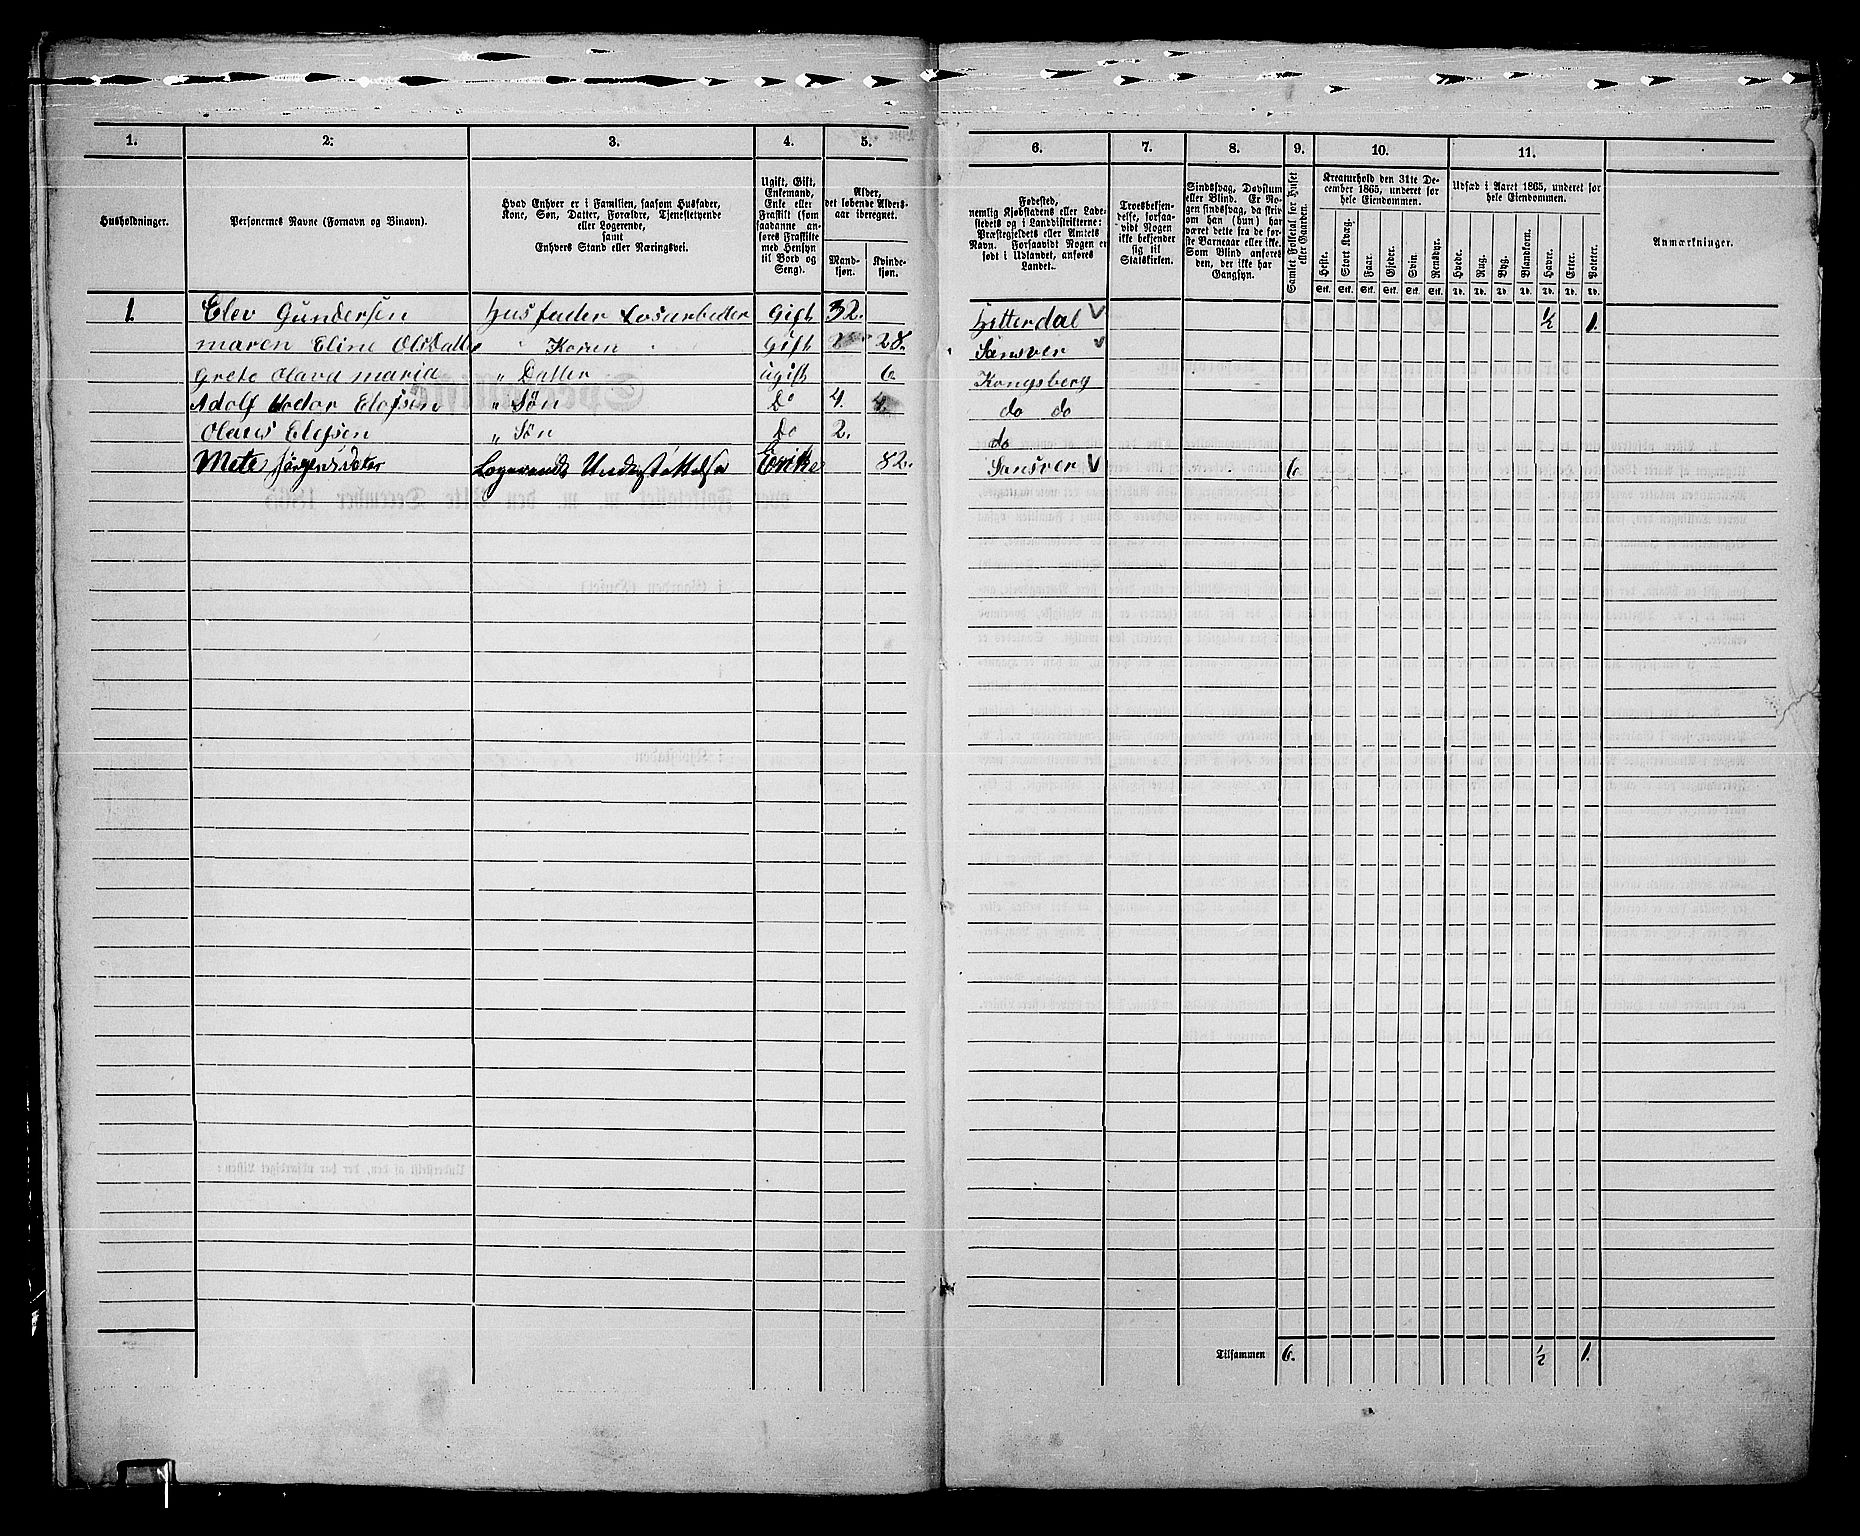 1.
2.
3.
4.
5.
6.
7.
8.
9.
10.
11.
Husholdninger.
Personernes Navne (Fornavn og Binavn).
Hvad Enhver er i Familien, saasom Husfader,
Kone, Søn, Datter, Forældre, Tjenestetyende
eller Logerende,
samt
Enhvers Stand eller Næringsvei.
Ugift, Gift,
Enkemand,
Enke eller
Fraskilt (som
saadanne an-
føres Fraskilte
med Hensyn
til Bord og
Seng).
Alder,
det løbende Alders-
aar iberegnet.
Mand-
kjøn.
Kvinde-
kjøn.
Fødested,
nemlig Kjøbstadens eller Lade-
stedets og i Landdistrikterne:
Præstegjeldets eller Amtets
Navn. Forsaavidt Nogen er
født i Udlandet, anføres
Landet.
Troesbekjen-
delse, forsaa-
vidt Nogen
ikke bekjender
sig til
Statskirken.
Sindssvag, Døvstum
eller Blind. Er No-
gen sindssvag, da skri-
ves om han (hun) har
været dette fra de før-
ste Barneaar eller ikke.
Som Blind anføres
den, der ikke har
Gangsyn.
Samlet Folketal for Huset
eller Gaarden.
Kreaturhold den 31te De-
cember 1865, underet for
hele Eiendommen.
Heste.
Stort Kvæg.
Faar.
Gjeder.
Svin.
Rensdyr.
Stk. Stk. Stk. Stk. Stk. Stk.
Udsæd i Aaret 1865, underet for
hele Eiendommen.
Hvede.
Rug.
Byg.
Blandkorn.
Havre.
Erter.
Poteter.
Td. Td. Td. Td. Td. Td. Td.
Anmærkninger.
1. Elev Gundersen Husfader Losarbeder Gift 32. Hitterdal ½ 1.
Maren Eline Olsdatte " Konen Gift 28. Sansver
Grete Olava Maria " Datter ugift 6 Kongsberg
Adolf Elefsen " Søn Do 4. do do
Olaus Elefsen " Søn Do 2. do
Mete Jørgensdater Logerende Understøttelse Enke 82. Sansver 6
Tilsammen 6. ½ 1.